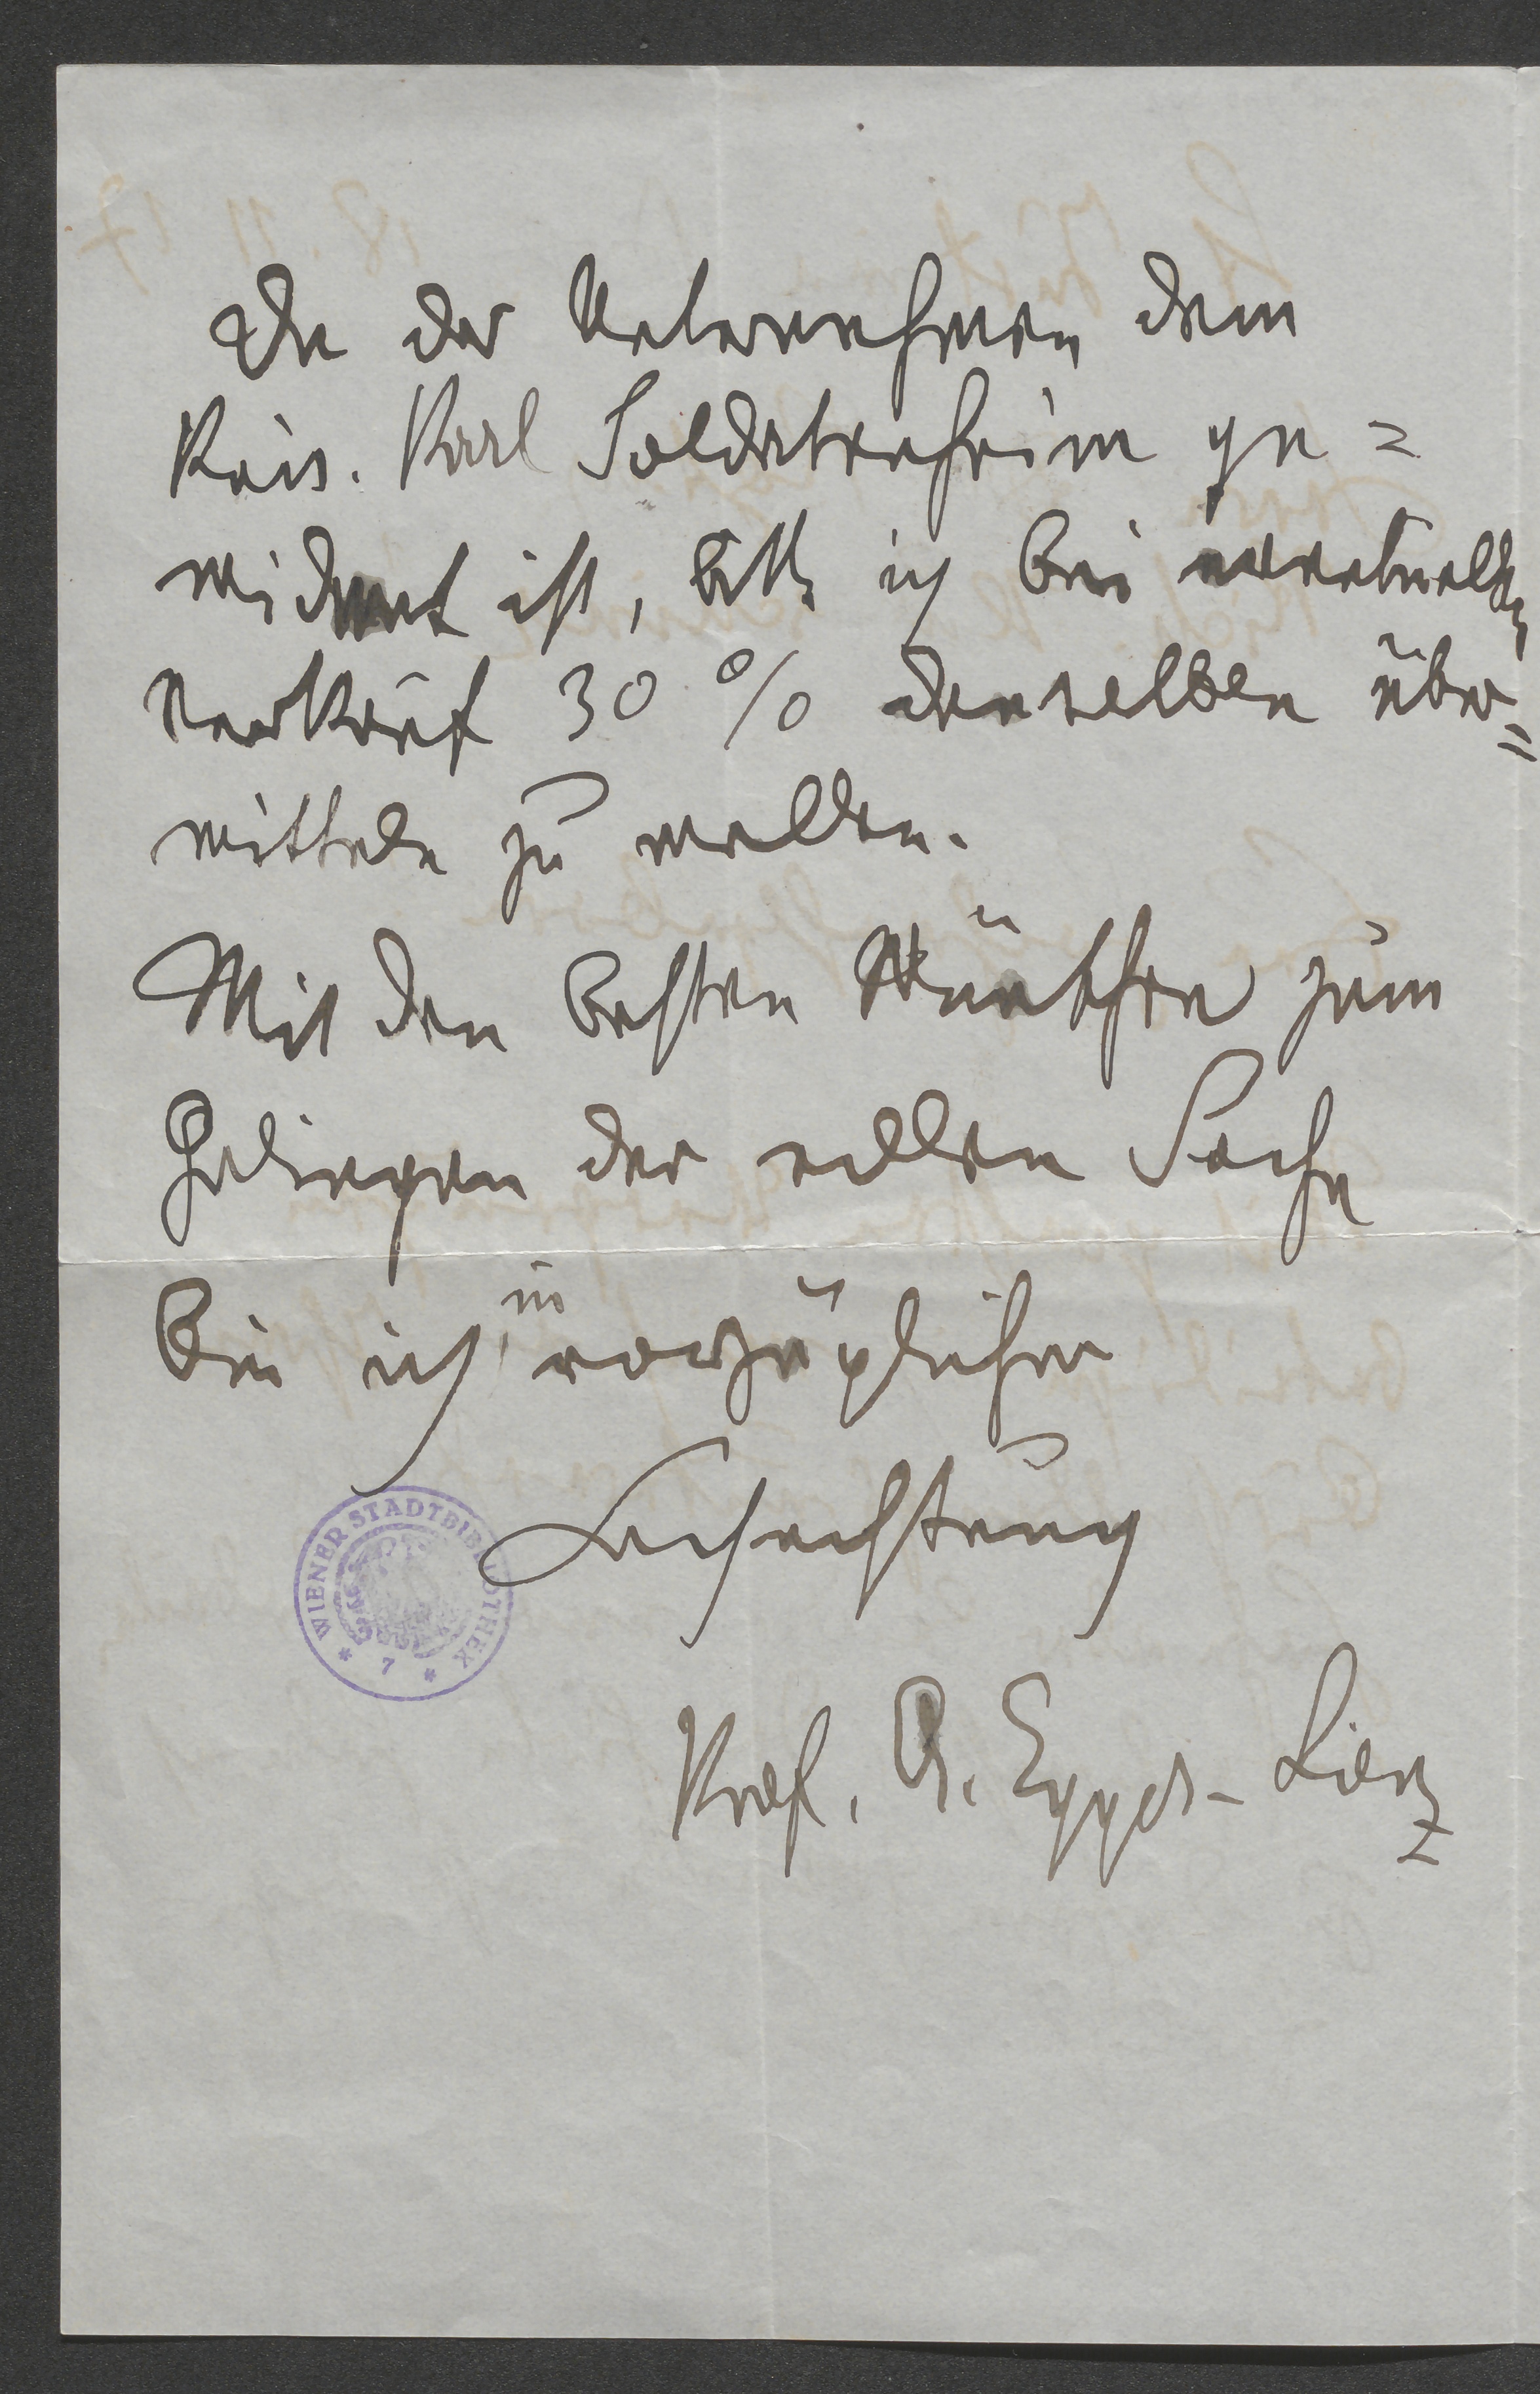 Da der Unternehmen dem
Kais. Karl Soldatenheim ge=
widmet ist, bitte ich bei eventuellen
Verkauf 30 % denselben über=
mitteln zu wollen.
Mit den besten Wünschen zum
Gelingen der edlen Sache
bin ich in vorzüglicher
Hochachtung
Prof. A. Egger-Lienz
WIENER STADTBIBLIOTHEK
* 7 *